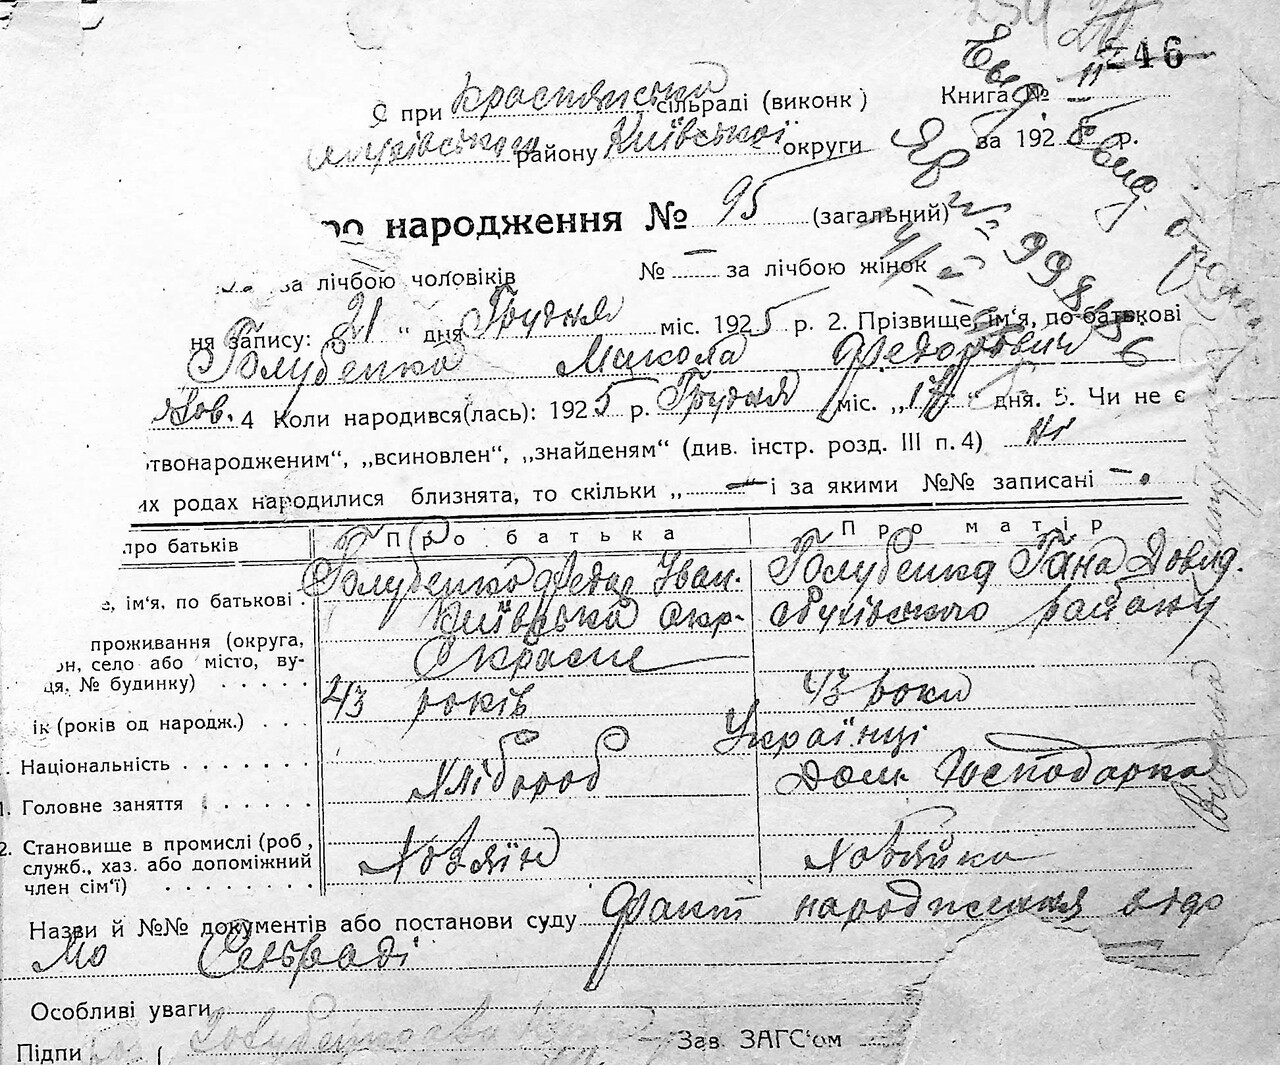 246
при Краснянській сільраді (виконк) Книга №
району Київської округи за 1925 р.
ро народження № 95 (загальний)
за лічбою чоловіків № – за лічбою жінок
ня запису: 21 " дня Грудня міс. 1925 р. 2. Прізвище, ім'я, по-батькові
Голубенко Микола Федорович
4 Коли народився(лась): 1925 р. Грудня міс. „17" дня. 5. Чи не є
твонародженим", „всиновлен", „знайденям" (див. інстр. розд. III п. 4) Ні
их родах народилися близнята, то скільки „ – і за якими №№ записані –.
про батьків Про батька Про матір
е, ім'я, по батькові. Голубенко Федор Іван. Голубенко Гана Довид.
проживання (округа, Київська окр. Обухівського району
он, село або місто, ву-
ця, № будинку) с Красне
ік (років од народж.) 43 років 43 роки
. Національність Українці
1. Головне заняття Хлібороб Дом. Господарка
2. Становище в промислі (роб,
служб., хаз. або допоміжний Хозяїн Хозяйка
член сім'ї)
Назви й №№ документів або постанови суду Факт народження відо
мо Сельраді
Особливі уваги
Підпи Зав ЗАГС'ом